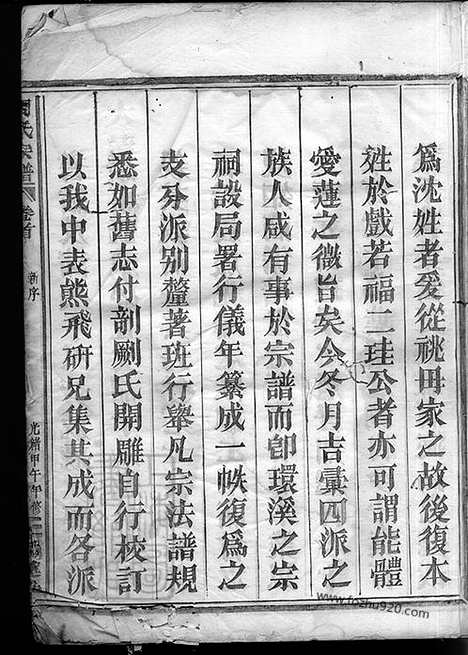 為沈姓者爰從祧毋家之故後復本
姓於戲若福二珪公者亦可謂能體
愛蓮之微旨矣今冬月吉彙四派之
族人咸有事於宗譜而卽環溪之宗
祠設局署行儀年纂成一帙復為之
支分派別釐著班行舉凡宗法譜規
悉如舊志付剞劂氏開雕自行校訂
以我中表熊飛研兄集其成而各派
氏宗譜 卷首 新序 光緒甲午
www.foshu920.com